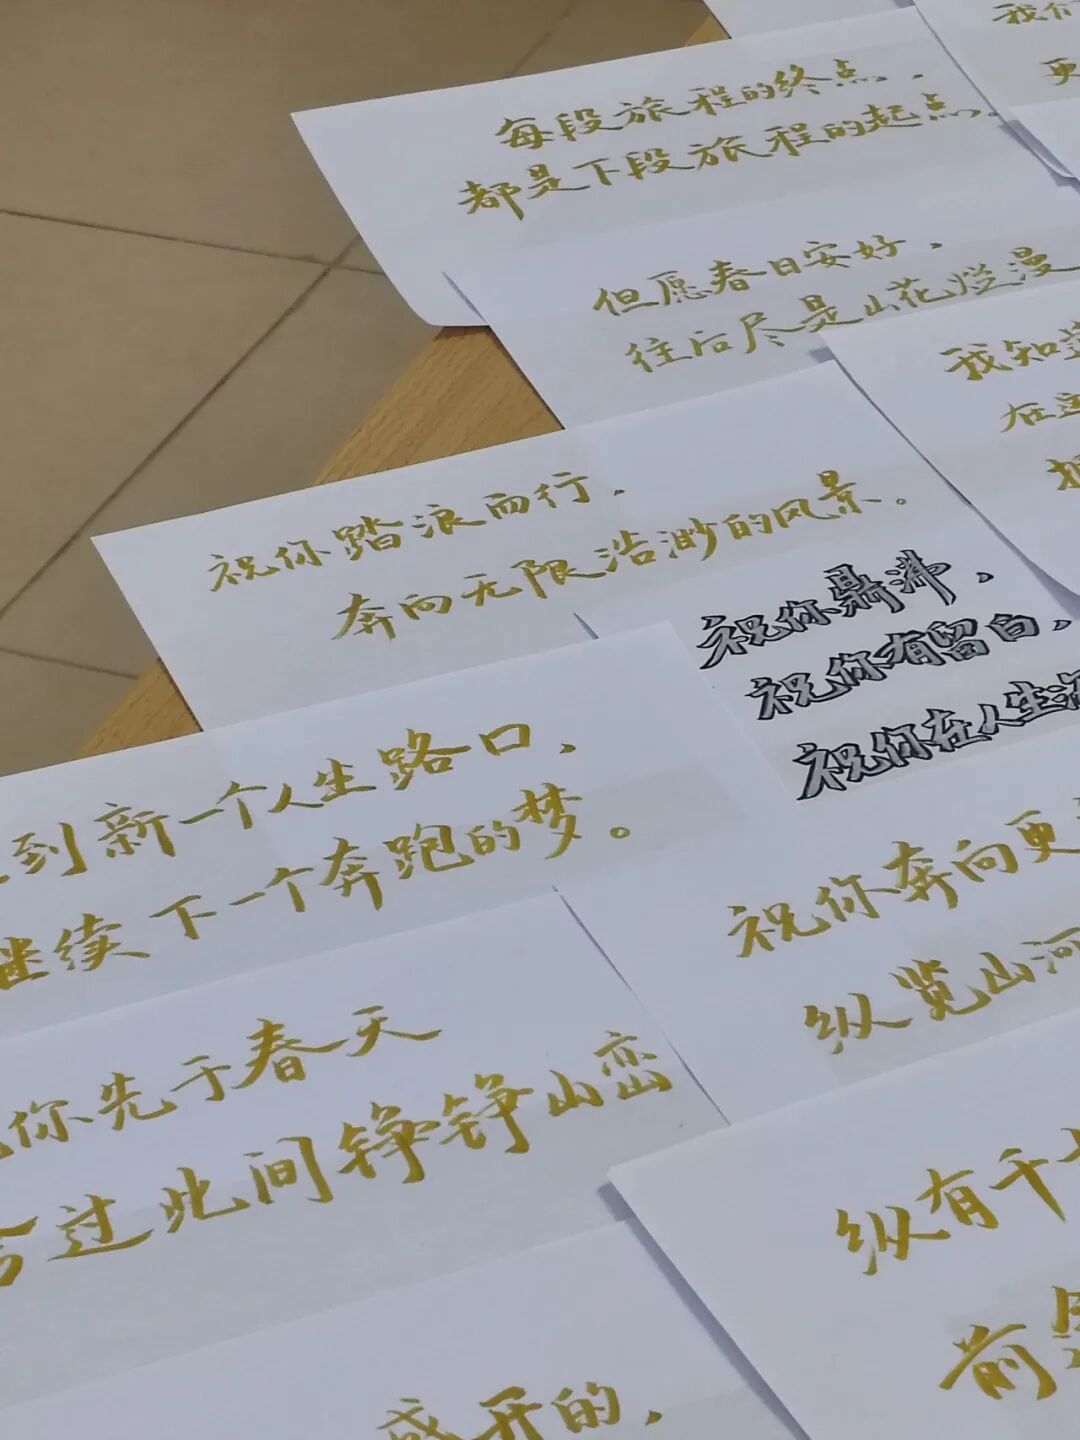 我们
更
每段旅程的终点，
都是下段旅程的起点。
但愿春日安好，
往后尽是山花烂漫
我知道
在这
祝你踏浪而行，
奔向无限浩渺的风景。
祝你鼎沸，
祝你有留白，
祝你在人生海
到新一个人生路口，
继续下一个奔跑的梦。
祝你奔向更
纵览山河
你先于春天
过此间铮铮山峦
纵有千
前
盛开的，